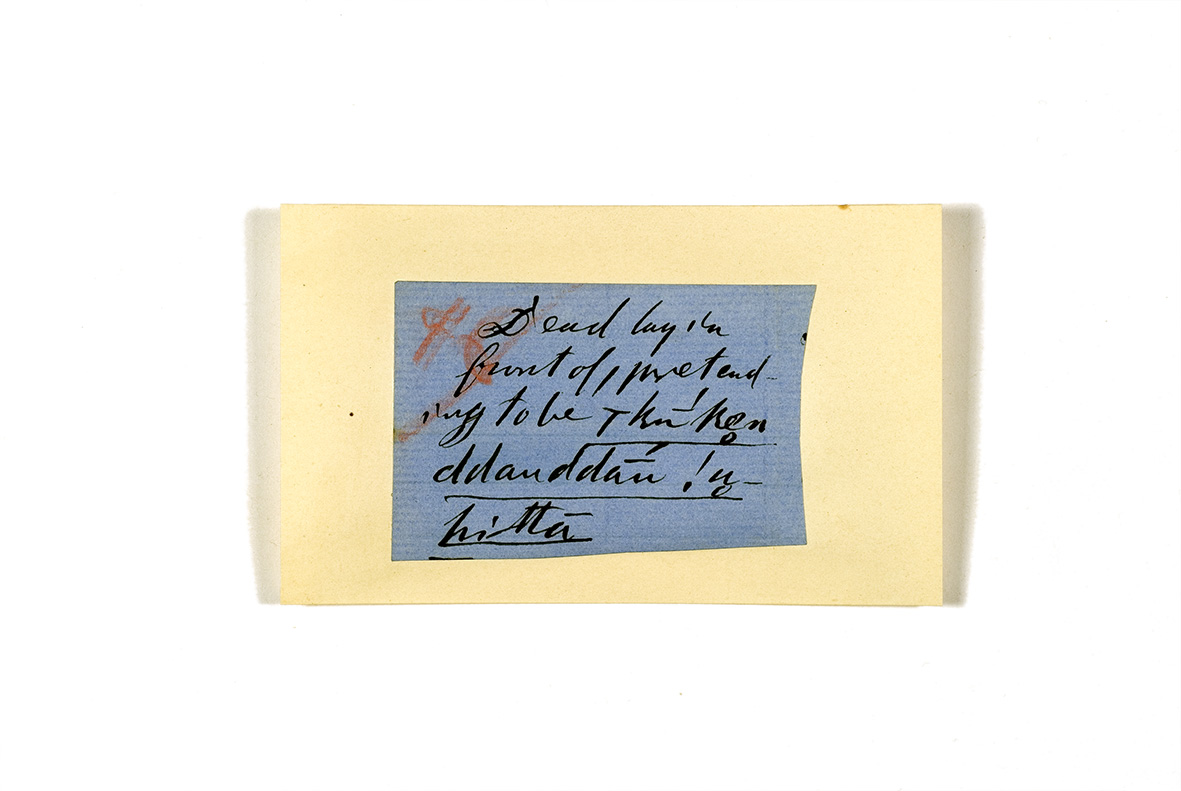 Dead lay in
front of, pretend-
ing to be ꞇkū́ken̥
ddauddaū !u̥-
hittā